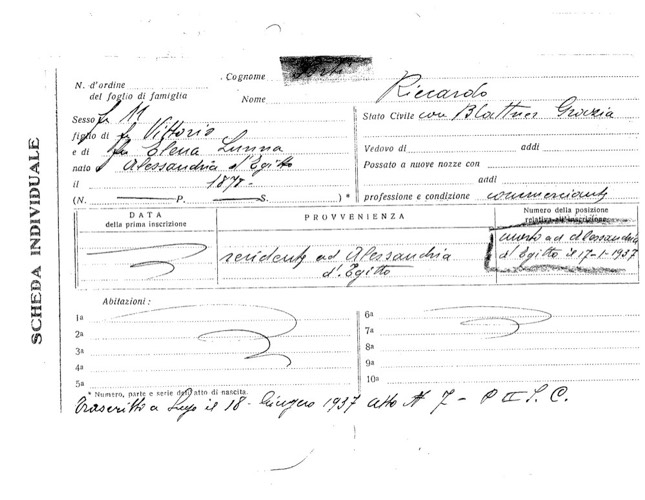 SCHEDA INDIVIDUALE
N. d'ordine
del foglio di famiglia
Cognome Forti
Nome Riccardo
Sesso M
figlio di fu Vittorio
e di fu Elena Lunna
nato Alessandria d'Egitto
il 187
(N. P. S. ) *
Stato Civile con Blattner Grazia
Vedovo di addì
Passato a nuove nozze con
addì
professione e condizione commerciante
DATA
della prima inscrizione
PROVVENIENZA
Numero della posizione
relativa all'inscrizione
residente ad Alessandria
d'Egitto
morto ad Alessandria
d'Egitto il 17-1-1937
Abitazioni :
1a
2a
3a
4a
5a
6a
7a
8a
9a
10a
* Numero, parte e serie dell'atto di nascita.
Trascritto a Lugo il 18 Giugno 1937 atto N 7 - P II S. C.